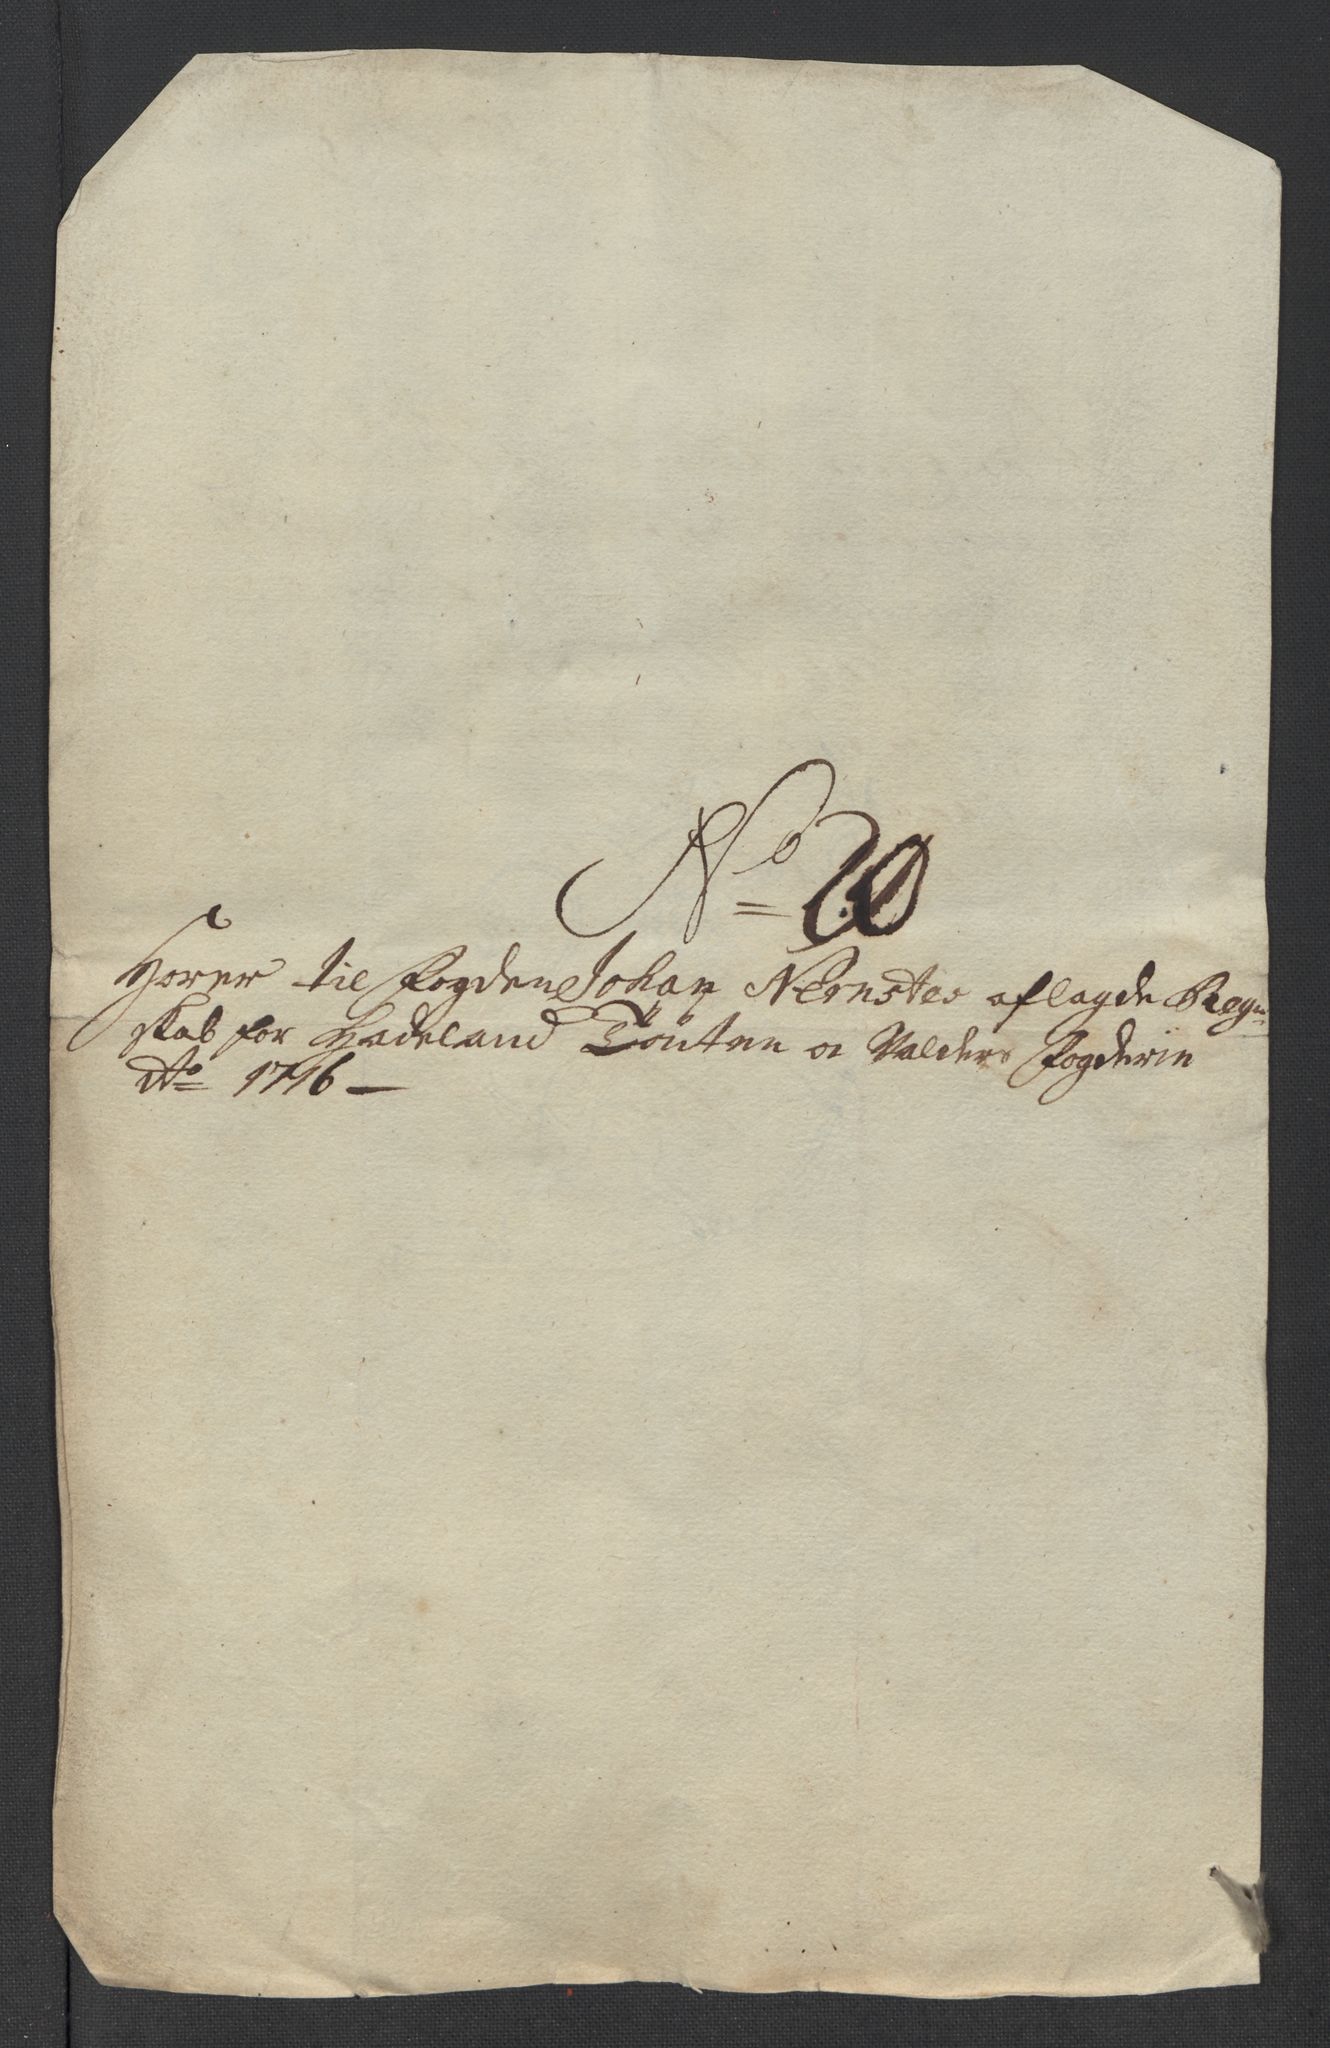 No 20
Hører til Fogden Johan Nernstes aflagde Regn-
skab for Hadeland Touten oc Valders Fogderie
Ao 1716